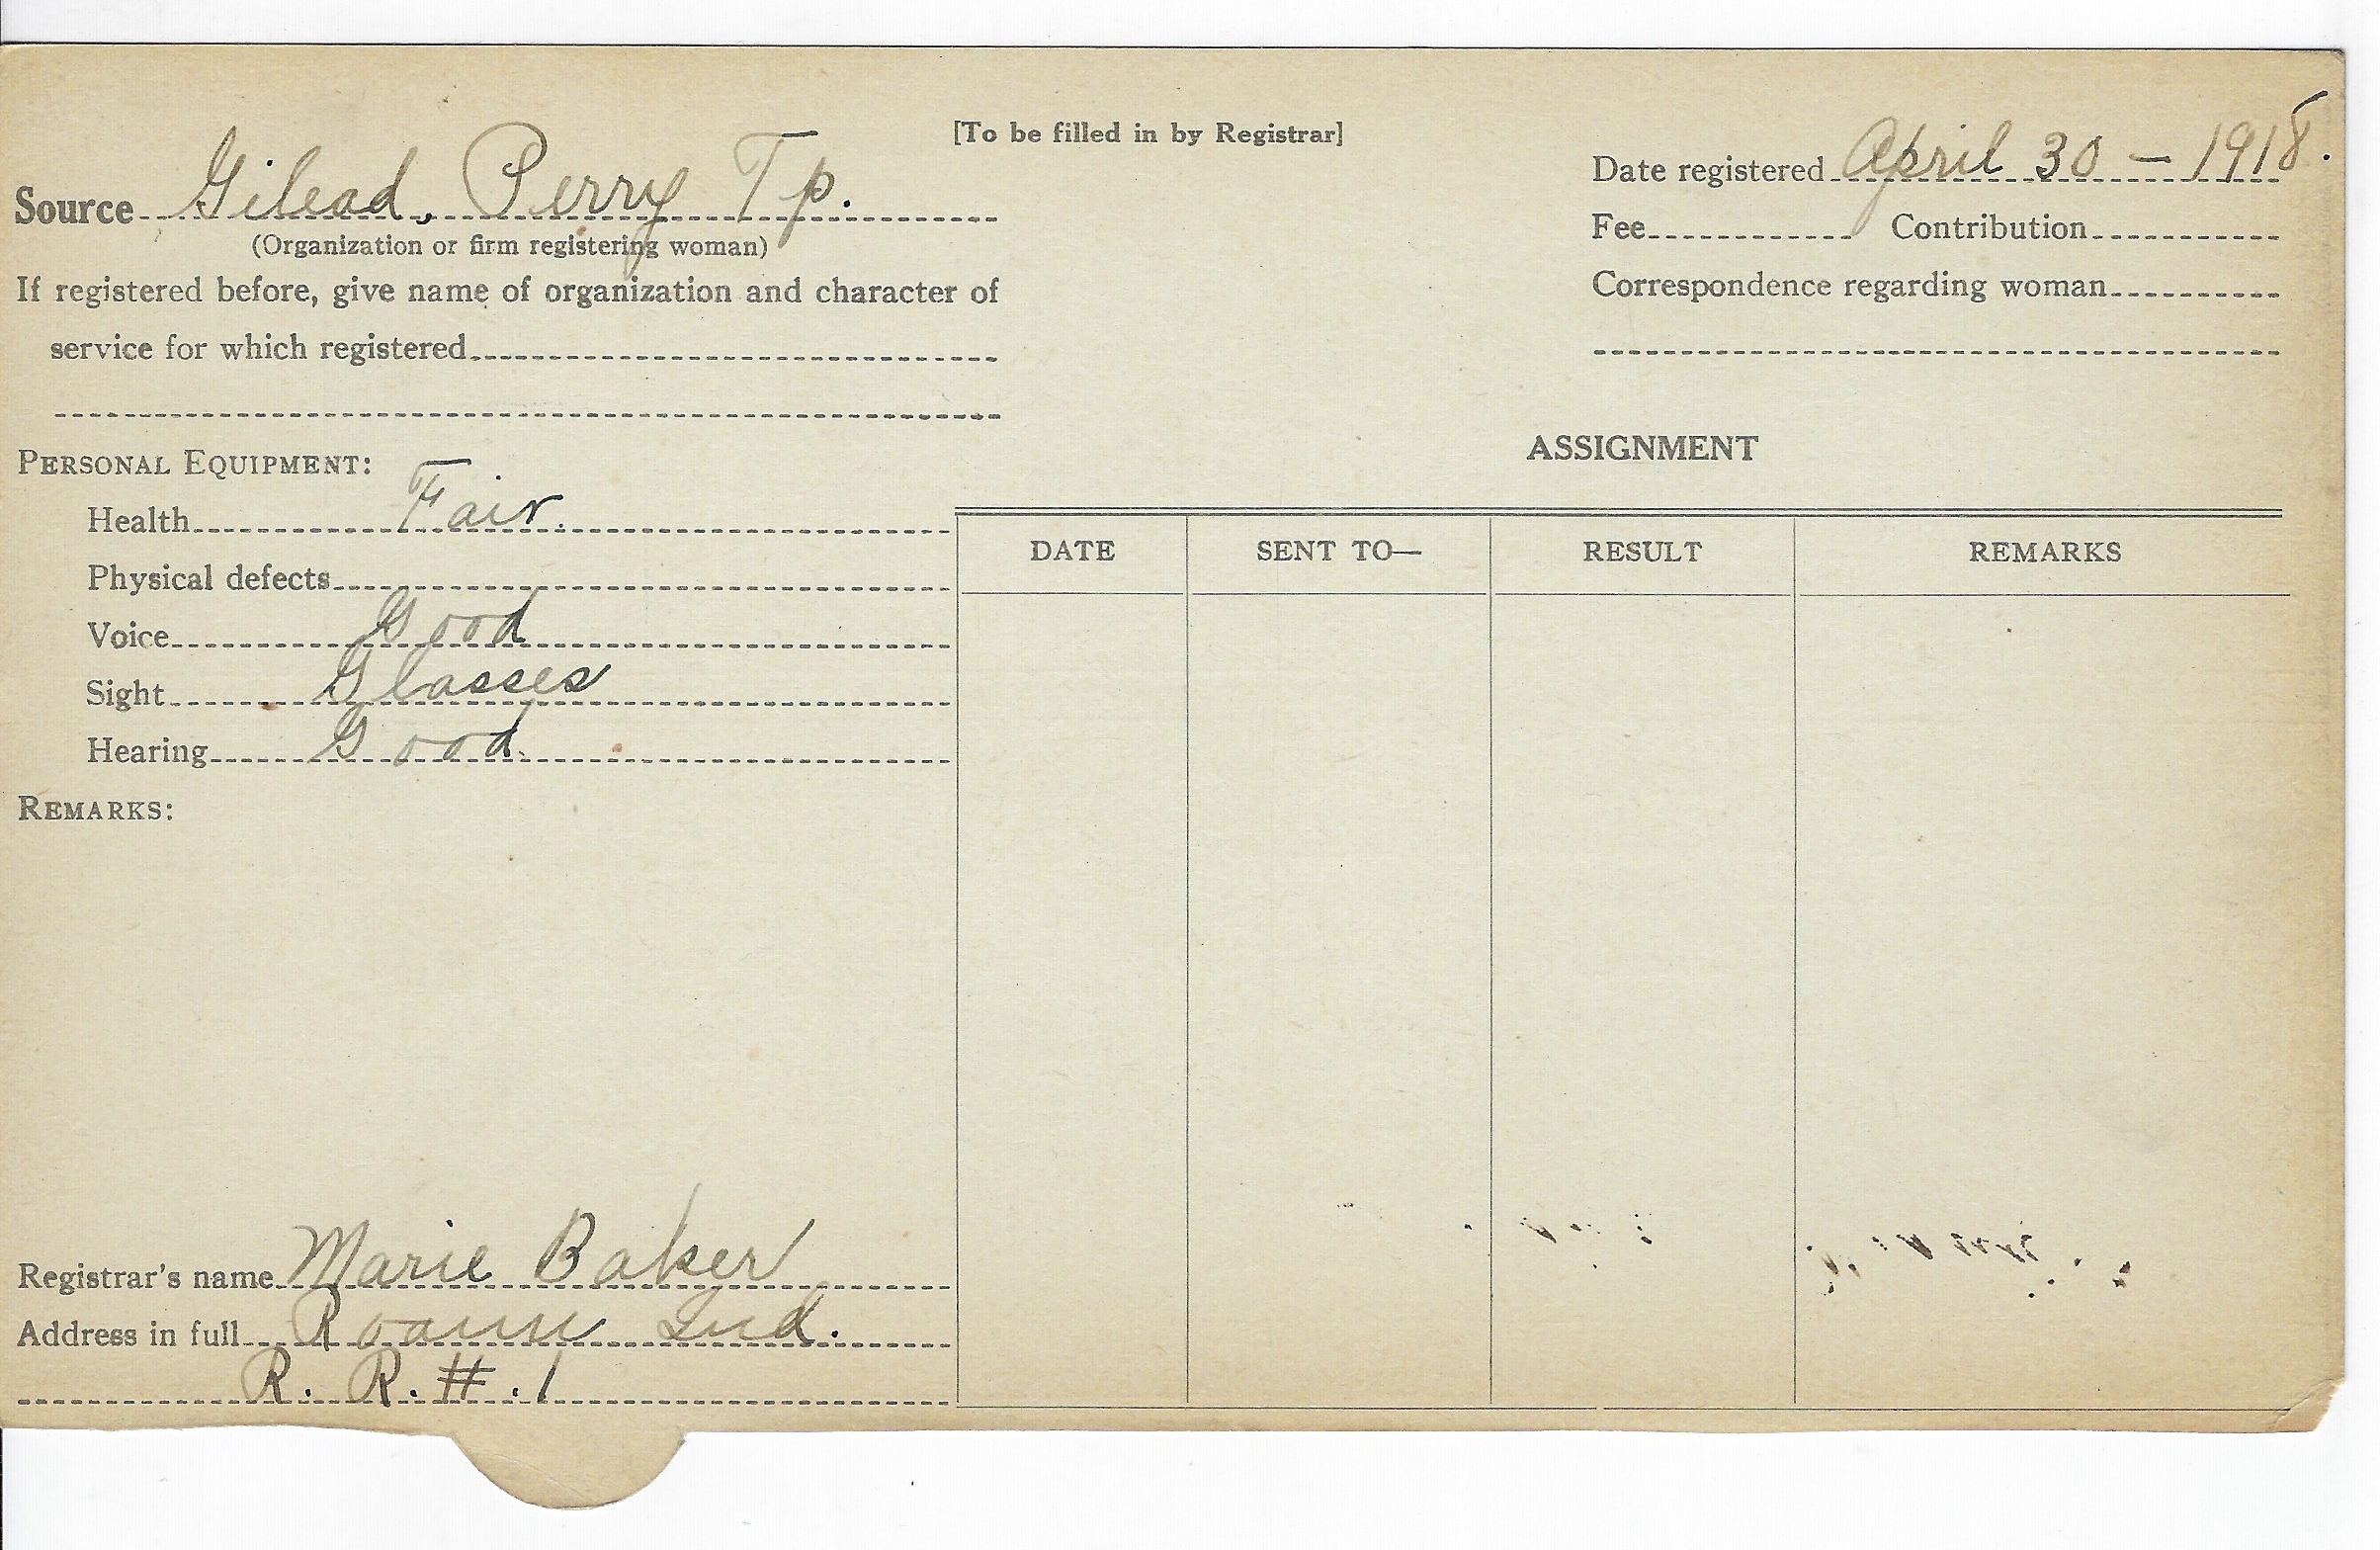 [To be filled in by Registrar]
Source Gilead, Perry Tp.
(Organization or firm registering woman)
If registered before, give name of organization and character of
service for which registered
Date registered April 30 - 1918.
Fee Contribution
Correspondence regarding woman
PERSONAL EQUIPMENT:
Health Fair.
Physical defects
Voice Good
Sight Glasses
Hearing Good.
REMARKS:
Registrar's name Marie Baker
Address in full Roann Ind.
R. R. #.1
ASSIGNMENT
DATE SENT TO— RESULT REMARKS